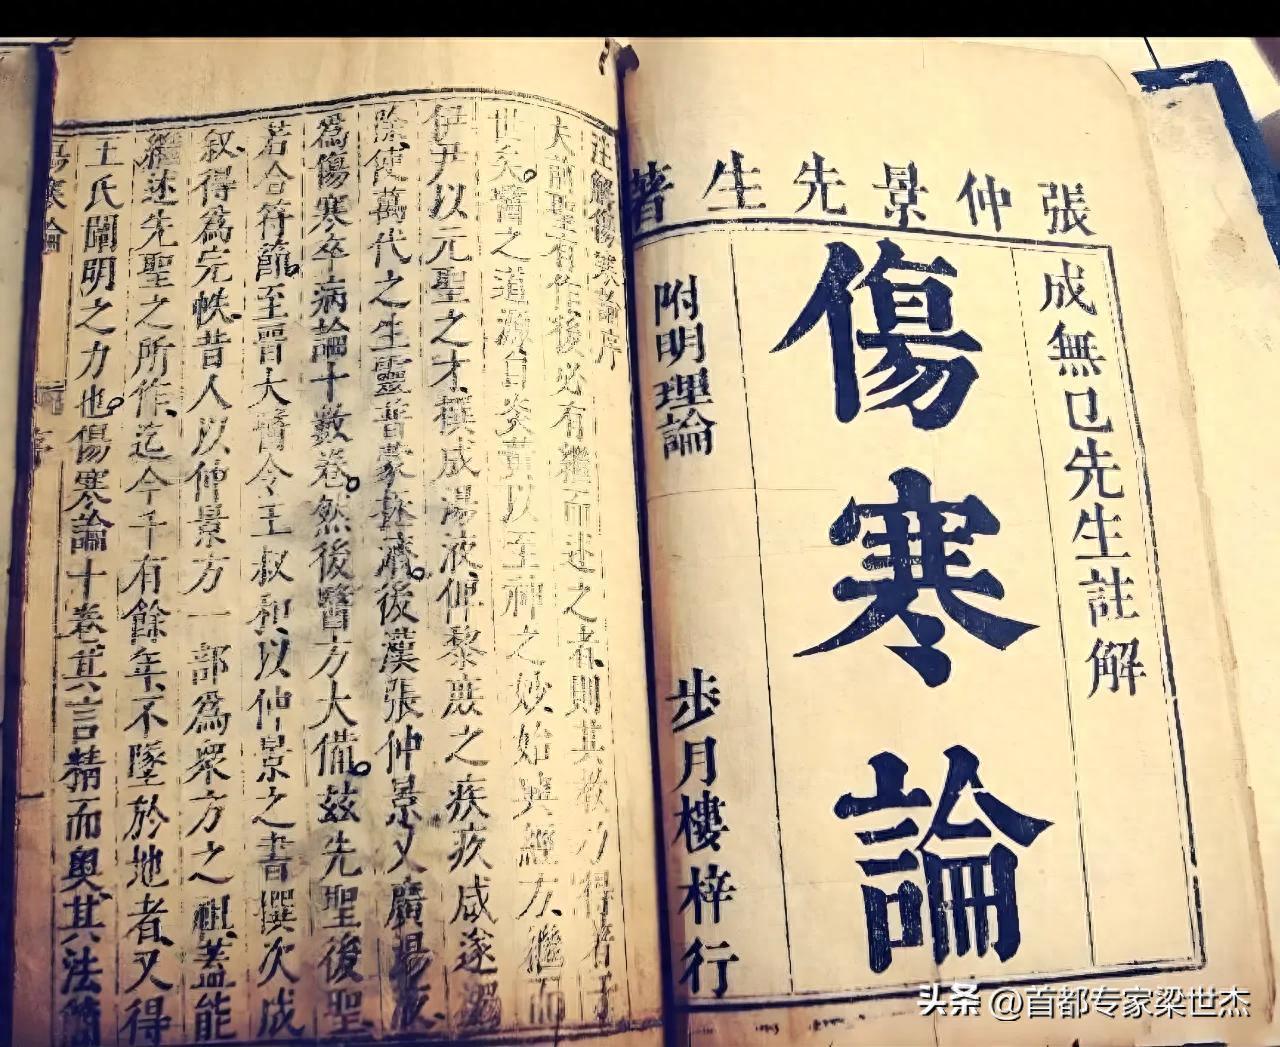 張仲景先生著
成無已先生註解
傷寒論
附明理論
步月樓梓行
註解傷寒論序
夫前聖有作後必有繼而述之者則其教乃得著于
世矣醫之道源自炎黃以至神之妙始興經方繼而
伊尹以元聖之才撰成湯液俾黎庶之疾疚咸遂蠲
除使萬代之生靈普蒙拯濟後漢張仲景又廣湯液
為傷寒卒病論十數卷然後醫方大備茲先聖後聖
若合符節至晉大醫令王叔和以仲景之書撰次成
叙得為完帙昔人以仲景方一部為眾方之祖蓋能
繼述先聖之所作迄今千有餘年不墜於地者又得
王氏闡明之力也傷寒論十卷其言精而奧其法簡
傷寒論
序
头条 @首都专家梁世杰